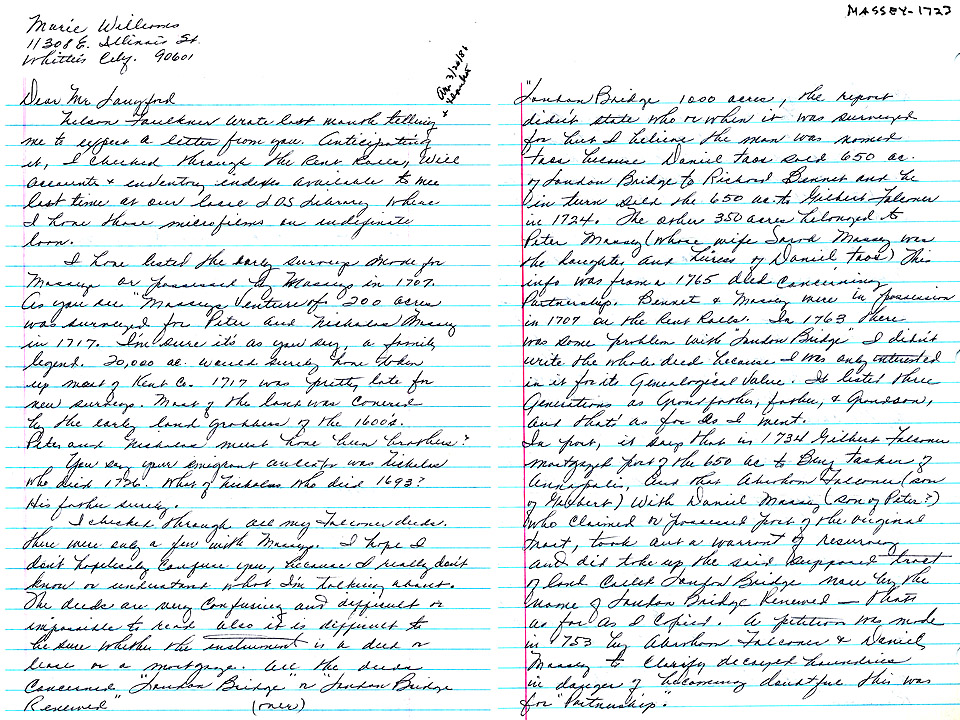 MASSEY-1723
Marie Williams
11308 E. Illinois St.
Whittier City. 90601
Dear Mr Langford
Nelson Faulkner wrote last month telling
me to expect a letter from you. Anticipating
it, I checked through the Rent Rolls, Will
accounts & inventory indexes available to me
last time at our local LDS Library where
I have those microfilms on indefinate
loan.
I have listed the early surveys made for
Masseys or possessed by Masseys in 1707.
As you see "Masseys Venture of 200 acres
was surveyed for Peter and Nicholas Massy
in 1717. I'm sure it's as you say, a family
legend. 20,000 ac. would surely have taken
up most of Kent Co. 1717 was pretty late for
new surveys. Most of the land was covered
by the early land grabbers of the 1600's.
Peter and Nicholas must have been brothers?
You say your emigrant ancestor was Nicholas
who died 1726. What of Nicholas who died 1693?
His father surely.
I checked through all my Falconer deeds.
There were only a few with Masseys. I hope I
don't hopelessly confuse you, because I really don't
know or understand what I'm talking about.
The deeds are very confusing and difficult or
impossible to read also it is difficult to
be sure whether the instrument is a deed or
lease or a mortgage. All the deeds
concerned "London Bridge" or "London Bridge
Renewed" (over)
"London Bridge 1000 acres, the report
didn't state who or when it was surveyed
for but I believe the man was named
Toas because Daniel Toas sold 650 ac.
of London Bridge to Richard Bennet and he
in turn sold the 650 ac to Gilbert Falconer
in 1724. The other 350 acres belonged to
Peter Massey (whose wife Sarah Massey was
the daughter and heiress of Daniel Toas) This
info was from a 1765 deed concerning
Partnership. Bennet & Massey were in possession
in 1707 on the Rent Rolls. In 1763 there
was some problem with "London Bridge" I didn't
write the whole deed because I was only interested
in it for its Genealogical Value. It listed three
Generations as Grandfather, father, & Grandson,
and that's as far as I went.
In part, it says that in 1734 Gilbert Falconer
mortgaged part of the 650 ac to Benj Tasker of
Annapolis, and that Abraham Falconer (son
of Gilbert) with Daniel Massey (son of Peter?)
who claimed or possessed part of the original
tract, took out a warrant of resurvey
and did take up the said supposed tract
of land called London Bridge now by the
name of London Bridge Renewed — thats
as far as I copied. A petition was made
in 1753 by Abraham Falconer & Daniel
Massey to clarify decayed boundries
in danger of becoming doubtful this was
for "Partnership."